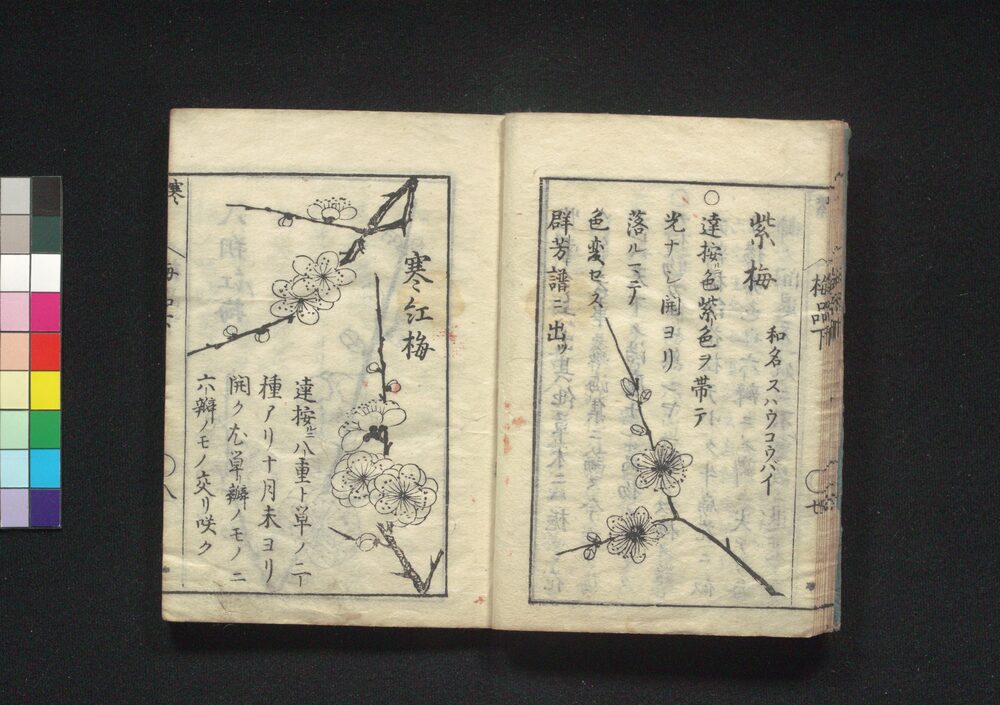 紫梅
和名スハウコウハイ
○
達按ルニ色紫色ヲ帯テ
光ナシ開ヨリ
落ルマテ
色変セス
群芳譜ニ出ツ
梅品下
寒紅梅
達按ルニ八重ト単ノ二
種アリ十月末ヨリ
開ク尤単瓣ノモノニ
六瓣ノモノ交リ咲ク